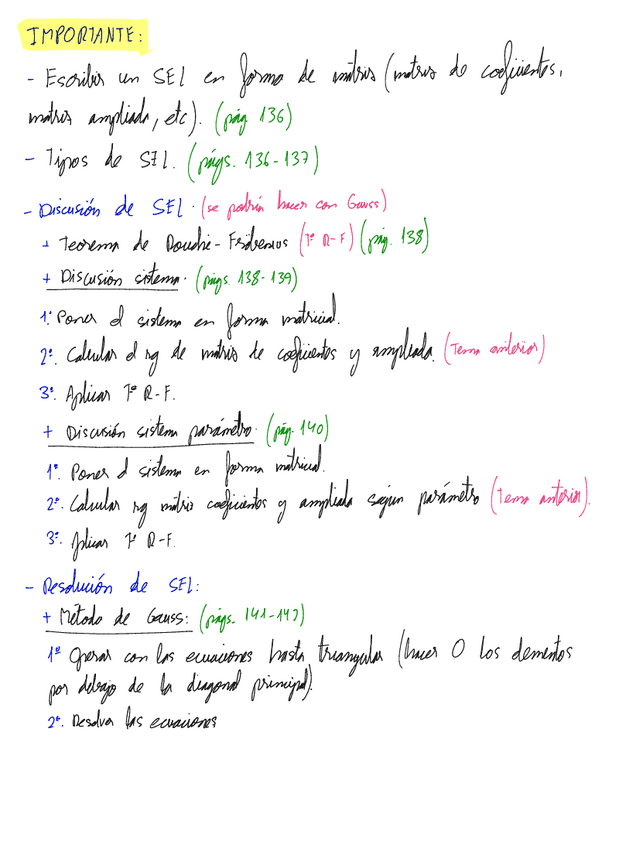 IMPORTANTE:
- Escribir un SEL en forma de matriz (matriz de coeficientes,
matriz ampliada, etc). (pág 136)
- Tipos de SEL. (págs. 136-137)
- Discusión de SEL. (se podría hacer con Gauss)
+ Teorema de Rouché-Fröbenius (Tª R-F) (pág. 138)
+ Discusión sistema. (págs. 138-139)
1º. Poner el sistema en forma matricial.
2º. Calcular el rg de matriz de coeficientes y ampliada. (Tema anterior)
3º. Aplicar Tª R-F.
+ Discusión sistema parámetro. (pág. 140)
1º. Poner el sistema en forma matricial.
2º. Calcular rg matriz coeficientes y ampliada según parámetro (Tema anterior).
3º. Aplicar Tª R-F.
- Resolución de SEL:
+ Método de Gauss: (págs. 141-143)
1º Operar con las ecuaciones hasta triangular (hacer 0 los elementos
por debajo de la diagonal principal).
2º. Resolver las ecuaciones